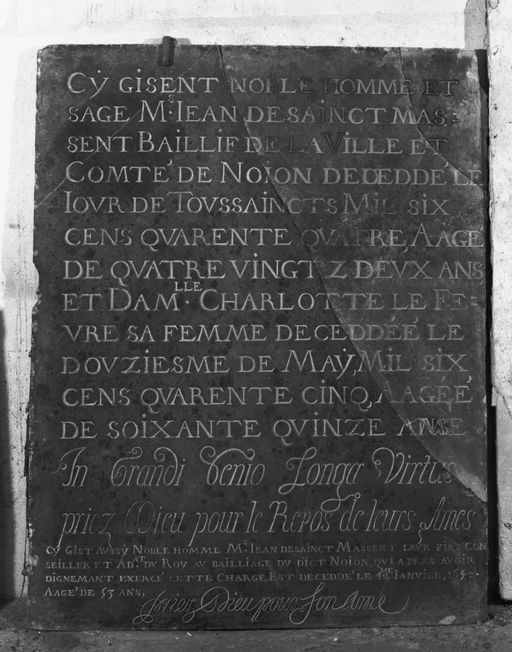 CY GISENT NOBLE HOMME ET
SAGE Mʳ. IEAN DE SAINCT MAS=
SENT BAILLIF DE LA VILLE ET
COMTÉ DE NOION DECEDDE LE
IOVR DE TOVSSAINCTS MIL SIX
CENS QVARENTE QVATRE, AAGE
DE QVATRE VINGT Z DEVX ANS
ET DAMˡˡᵉ. CHARLOTTE LE FE=
VRE SA FEMME DECEDDÉÉ LE
DOVZIESME DE MAY, MIL SIX
CENS QVARENTE CINQ, AAGÉÉ
DE SOIXANTE QVINZE ANS
In Grandi Genio Longa Virtus
priez Dieu pour le Repos de leurs Ames
CY GIST AVSSY NOBLE HOMME Mᵉ. IEAN DESAINCT MASSENT LEVR FILS CON
SEILLER ET ADᵗ. DV ROY AV BAILLIAGE DV DICT NOION, QVI APRES AVOIR
DIGNEMANT EXERCÉ CETTE CHARGE, EST DECEDDÉ LE IANVIER, 1652.
AAGÉ DE 53 ANS, Priez Dieu pour son Ame